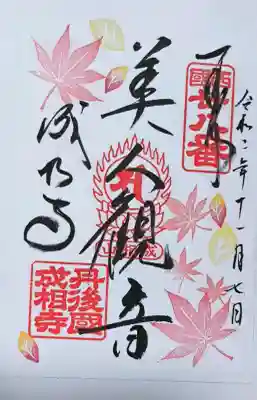 令和二年十一月七日
奉拝
西國
廿八番
美人觀音
成相寺
丹後國
成相寺